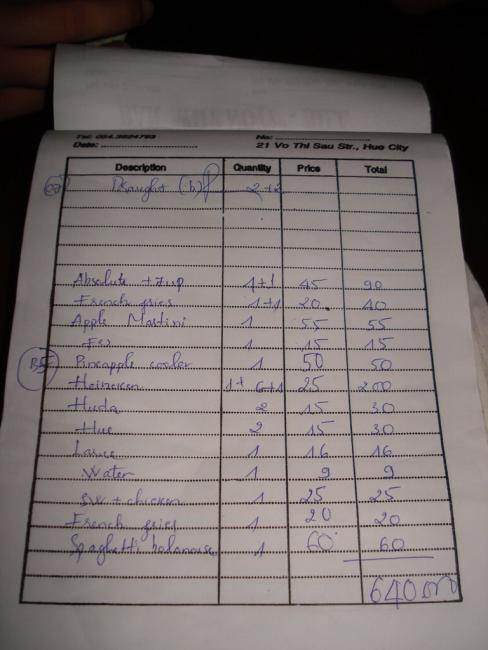 Tel: 054.3824793 No:
Date: 21 Vo Thi Sau Str., Hue City
Description Quantity Price Total
Draught (b) 2+2
Absolute + 7up 1+1 45 90
French fries 1+1 20 40
Apple Martini 1 55 55
1 15 15
Pineapple cooler 1 50 50
Heineken 1+6+1 25 200
Huda 2 15 30
Hue 2 15 30
1 16 16
Water 1 9 9
SW + chicken 1 25 25
French fries 1 20 20
Spaghetti bolonaise 1 60 60
640